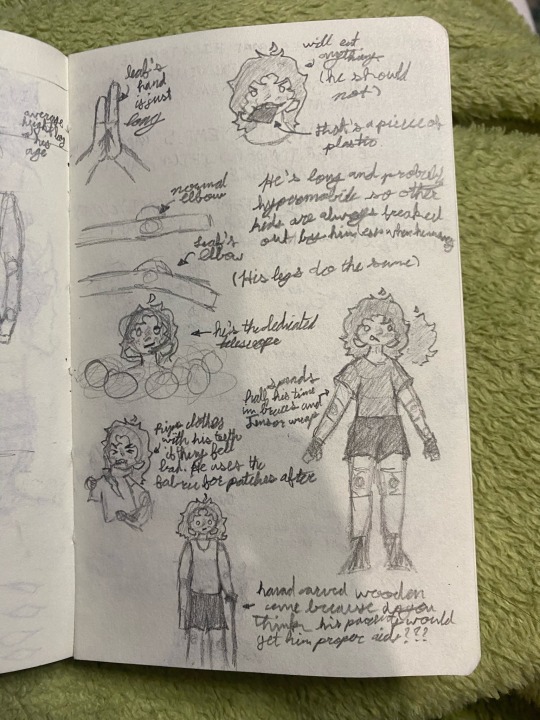 average
height for
his
age
leaf's
hand
is just
long
will eat
anything
(he should
not)
that's a piece of
plastic
normal
elbow
leaf's
elbow
He's long and probably
hypermobile so other
kids are always freaked
out by him
(His legs do the same)
he's the dedicated
telescope
spends
half his time
in braces and
tensor wrap
Rips clothes
with his teeth
if they feel
bad. He uses the
fabric for patches after
hand carved wooden
cane because do you
think his parents would
get him proper aids???